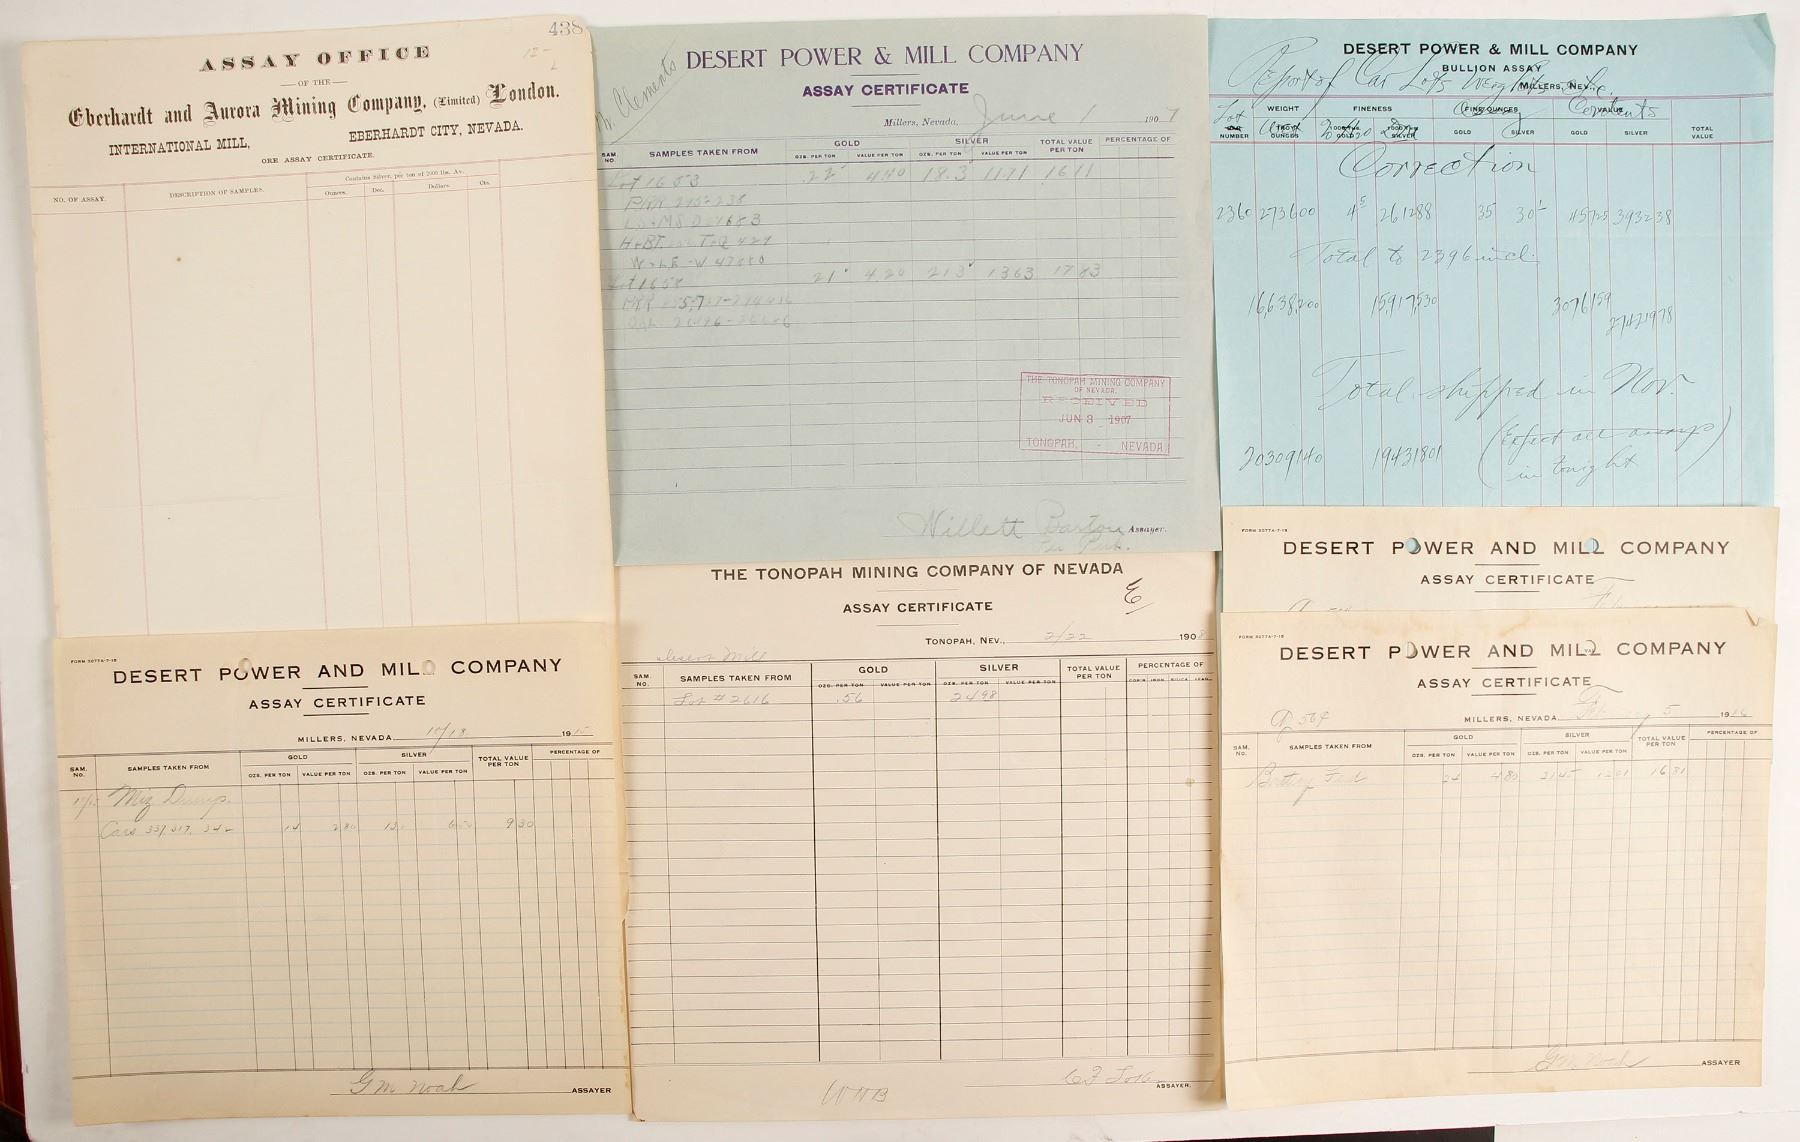 438
ASSAY OFFICE
OF THE
Eberhardt and Aurora Mining Company, (Limited) London.
INTERNATIONAL MILL, EBERHARDT CITY, NEVADA.
ORE ASSAY CERTIFICATE.
NO. OF ASSAY. DESCRIPTION OF SAMPLES. Contains Silver, per ton of 2000 lbs. Av.
Ounces. Dec. Dollars. Cts.
DESERT POWER & MILL COMPANY
ASSAY CERTIFICATE
Clements
Millers, Nevada, June 1 1907
SAM. NO. SAMPLES TAKEN FROM GOLD SILVER TOTAL VALUE PER TON PERCENTAGE OF
OZS. PER TON VALUE PER TON OZS. PER TON VALUE PER TON
Lot 1653 .22 4.40 18.3 1171 1611
Lot 1658 21 4.20 213 1363 1783
THE TONOPAH MINING COMPANY
OF NEVADA.
RECEIVED
JUN 3 1907
TONOPAH, - NEVADA
Willett Barton Assayer.
DESERT POWER & MILL COMPANY
BULLION ASSAY
Report of Car Lots
MILLERS, NEV.,
Lot WEIGHT FINENESS FINE OUNCES VALUE Contents
NUMBER TROY OUNCES GOLD SILVER GOLD SILVER GOLD SILVER TOTAL VALUE
Correction
2360 273600 45 261288 35 30 45725 393238
Total to 2396 incl.
16,638,200 15,917,530 3076159 27421978
Total shipped in Nov.
20309140 19431801
in tonight
FORM 3077A-7-15
DESERT POWER AND MILL COMPANY
ASSAY CERTIFICATE
FORM 3077A-7-15
DESERT POWER AND MILL COMPANY
ASSAY CERTIFICATE
MILLERS, NEVADA 10/18 1915
SAM. No. SAMPLES TAKEN FROM GOLD SILVER TOTAL VALUE PER TON PERCENTAGE OF
OZS. PER TON VALUE PER TON OZS. PER TON VALUE PER TON
Miz Dump.
Cars 337, 317, 342 14 2.80 13. 650 9 30
G M Noah ASSAYER
THE TONOPAH MINING COMPANY OF NEVADA
ASSAY CERTIFICATE
E
TONOPAH, NEV., 2/22 1908
Desert Mill
SAM. NO. SAMPLES TAKEN FROM GOLD SILVER TOTAL VALUE PER TON PERCENTAGE OF
OZS. PER TON VALUE PER TON OZS. PER TON VALUE PER TON COP'R IRON SILICA LEAD
Lot # 2616 .56 2498
ASSAYER.
FORM 3077A-7-15
DESERT POWER AND MILL COMPANY
ASSAY CERTIFICATE
MILLERS, NEVADA 5 1916
SAM. No. SAMPLES TAKEN FROM GOLD SILVER TOTAL VALUE PER TON PERCENTAGE OF
OZS. PER TON VALUE PER TON OZS. PER TON VALUE PER TON
Battery Feed 24 480 2145 1201 1681
G M Noah ASSAYER